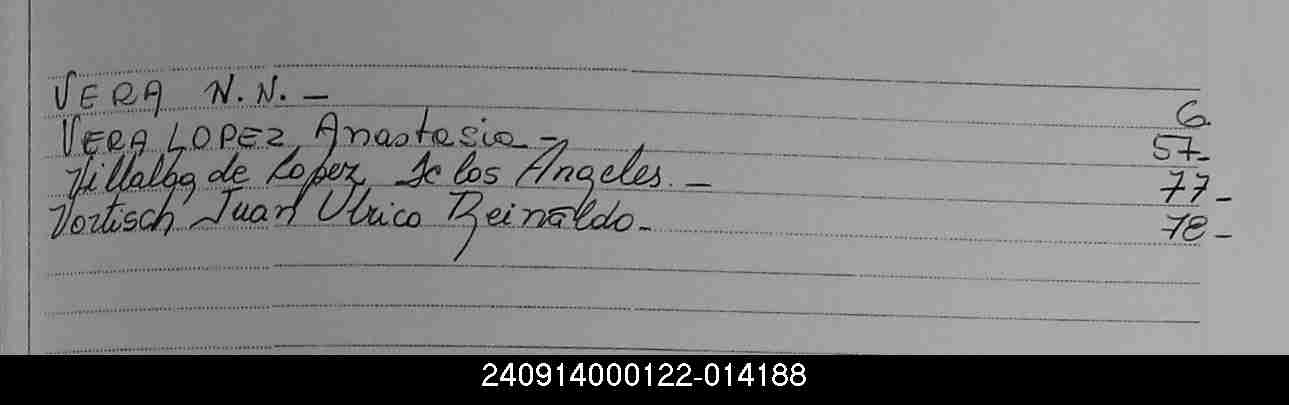 VERA N.N. - 6.
VERA LOPEZ Anastasio - 57-
Villalba de Lopez de los Angeles. - 77-
Vortisch, Juan Ulrico Reinaldo. 78-
240914000122-014188